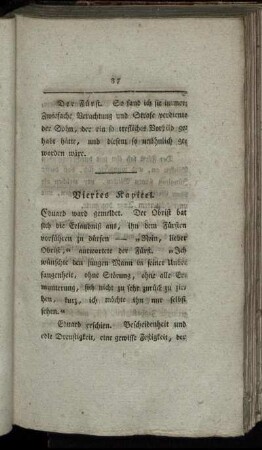 97
Der Fürst. So fand ich sie immer.
Zwiefache Verachtung und Strafe verdiente
der Sohn, der ein so treffliches Vorbild ge-
habt hätte, und diesem so unähnlich ge-
worden wäre.
Viertes Kapitel.
Eduard ward gemeldet. Der Obrist bat
sich die Erlaubniß aus, ihn dem Fürsten
vorführen zu dürfen — „Nein, lieber
Obrist,“ antwortete der Fürst. „Ich
wünschte den jungen Mann in seiner Unbe-
fangenheit, ohne Störung, ohne alle Er-
munterung, sich nicht zu sehr zurück zu zie-
hen, kurz, ich möchte ihn nur selbst
sehen.“
Eduard erschien. Bescheidenheit und
edle Dreustigkeit, eine gewisse Festigkeit, der